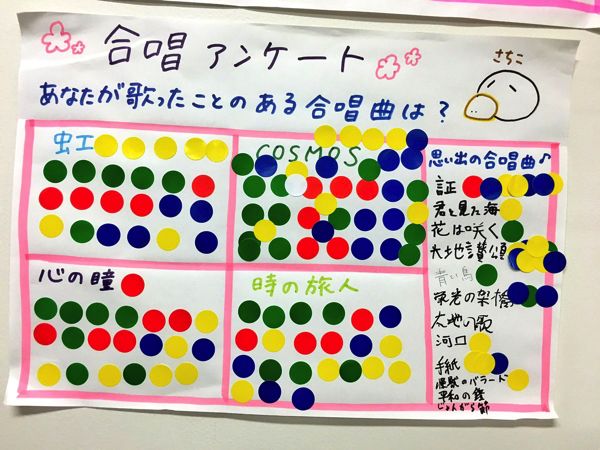 合唱アンケート
さちこ
あなたが歌ったことのある合唱曲は？
虹
COSMOS
心の瞳
時の旅人
思い出の合唱曲♪
証
君と見た海
花は咲く
大地讃頌
青い鳥
栄光の架橋
大地の歌
河口
手紙
怪獣のバラード
平和の鐘
じょんがら節